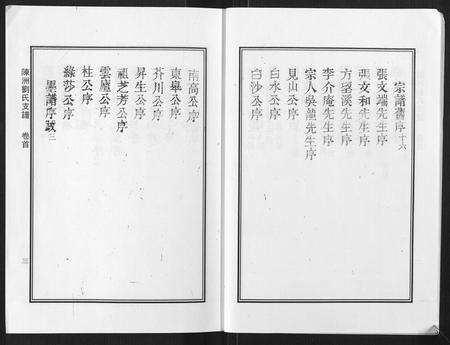 宗譜舊序十六
張文端先生序
張文和先生序
方望溪先生序
李介庵先生序
宗人吳龍先生序
見山公序
白水公序
白沙公序
南高公序
東臯公序
芥川公序
昇生公序
祖芝芳公序
雲廬公序
杜公序
綠莎公序
墨譜序跋二
陳洲劉氏支譜
卷首
三